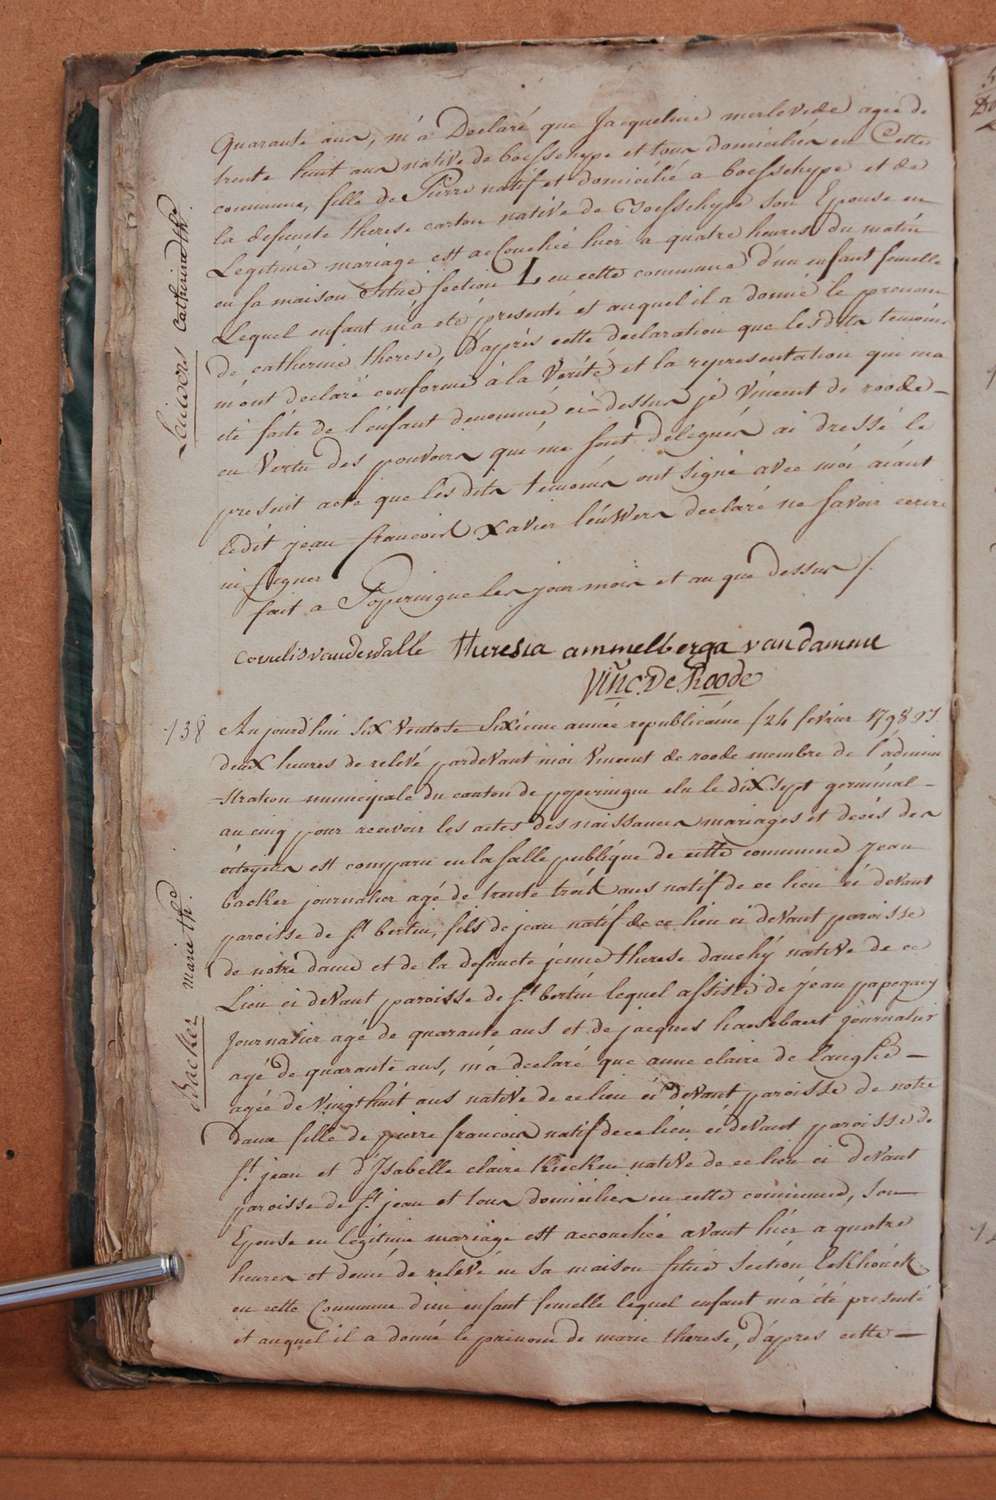 quarante ans, m'a Declaré que Jacqueline merlevede agée de
trente huit ans native de boeschepe et tous domiciliés en Cette
commune, fille de Pierre natif et domicilié a boeschepe et de
la defuncte therese carton native de Boesschepe son Epouse en
Legitime mariage est accouchée hier a quatre heures du matin
en sa maison Situé section L en cette commune d'un enfant femelle
Lequel enfant m'a eté presenté et auquel il a donné le prenom
De catherine therese, d'après cette declaration que lesdits temoins
m'ont declaré conforme à la Verité et la representation qui m'a
eté faite de l'enfant denommé ci-dessus je vincent de roode
en Vertu des pouvoirs qui me sont délegués ai dressé le
present acte que lesdits temoins ont signé avec moi aiant
ledit jean francois Xavier léuwers declaré ne savoir ecrire
ni signer
fait a Poperingue les jour mois et an que dessus /.
Leuwers Catherine Thse
cornelis vandewalle theresia ammelberga vandamme
Vinc. De Roode
138 Aujourd'hui six Ventose Sixieme année republicaine /24 fevrier 1798 vs
deux heures de relevé pardevant moi Vincent de roode membre de l'admini
-stration municipale du canton de poperingue elu le dix sept germinal
an cinq pour recevoir les actes des naissances mariages et decés des
citoyens est comparu en la salle publique de cette commune jean
backer journalier agé de trente trois ans natif de ce lieu ci devant
paroisse de st bertin, fils de jean natif de ce lieu ci devant paroisse
de notre dame et de la defuncte jenne therese dauchÿ native de ce
Lieu ci devant paroisse de st bertin lequel assisté de jean papegaey
journalier agé de quarante ans et de jacques haesebaert journalier
agé de quarante ans, m'a declaré que anne claire de langhe
agée de vingthuit ans native de ce lieu ci devant paroisse de notre
dame fille de pierre francois natif de ce lieu ci devant paroisse de
st jean et d'Isabelle claire Kiecken native de ce lieu ci devant
paroisse de st jean et tous domiciliés en cette commune, son
Epouse en légitime mariage est accouchée avant hier a quatre
heures et demi de relevé en sa maison situé section Eekhoúck
en cette Commune d'un enfant femelle lequel enfant m'a été presenté
et auquel il a donné le prenom de marie therese, d'apres cette
Backer marie thse